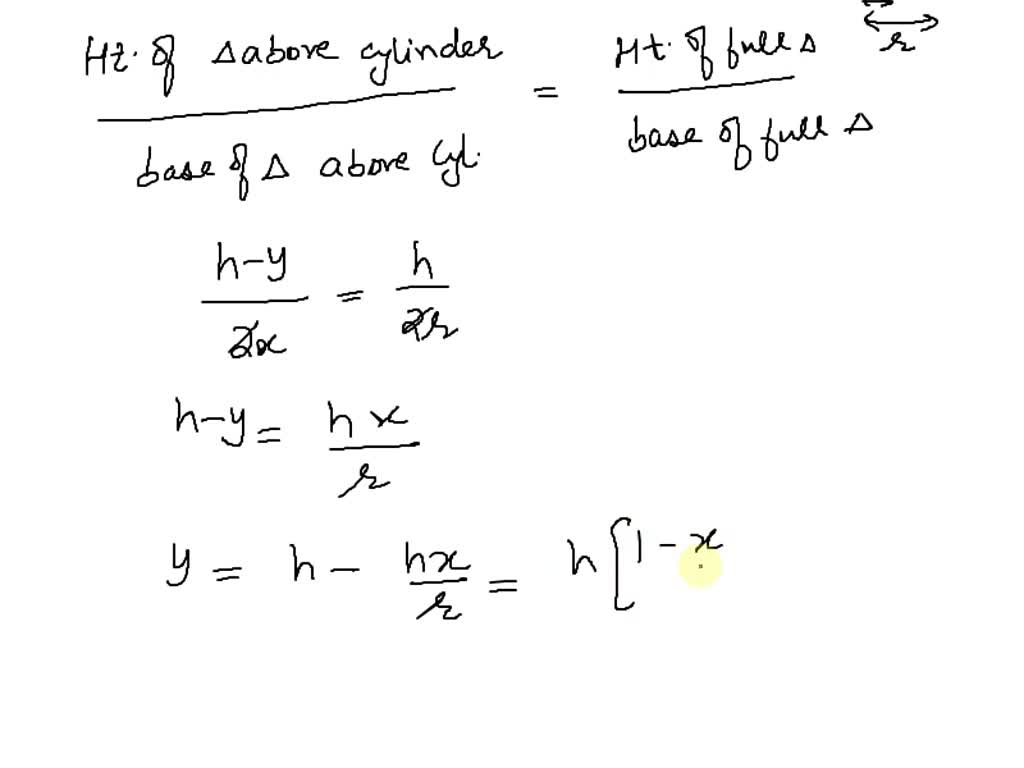 Ht. of Δ above cylinder / base of Δ above cyl. = Ht. of full Δ / base of full Δ
r
h-y / 2x = h / 2r
h-y = hx / r
y = h - hx / r = h [ 1 - x